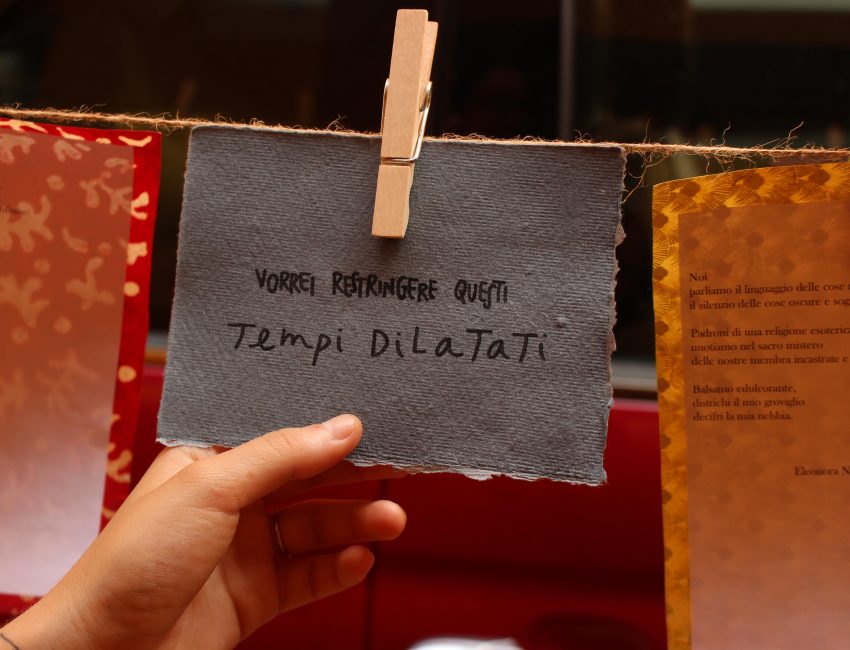 VORREI RESTRINGERE QUESTI
TEMPI DILATATI
Noi
parliamo il linguaggio delle cose
il silenzio delle cose oscure e
Padroni di una religione esoterica
nuotiamo nel sacro mistero
delle nostre membra incastrate e
Balsamo edulcorante,
districhi il mio groviglio
decifri la mia nebbia.
Eleonora N